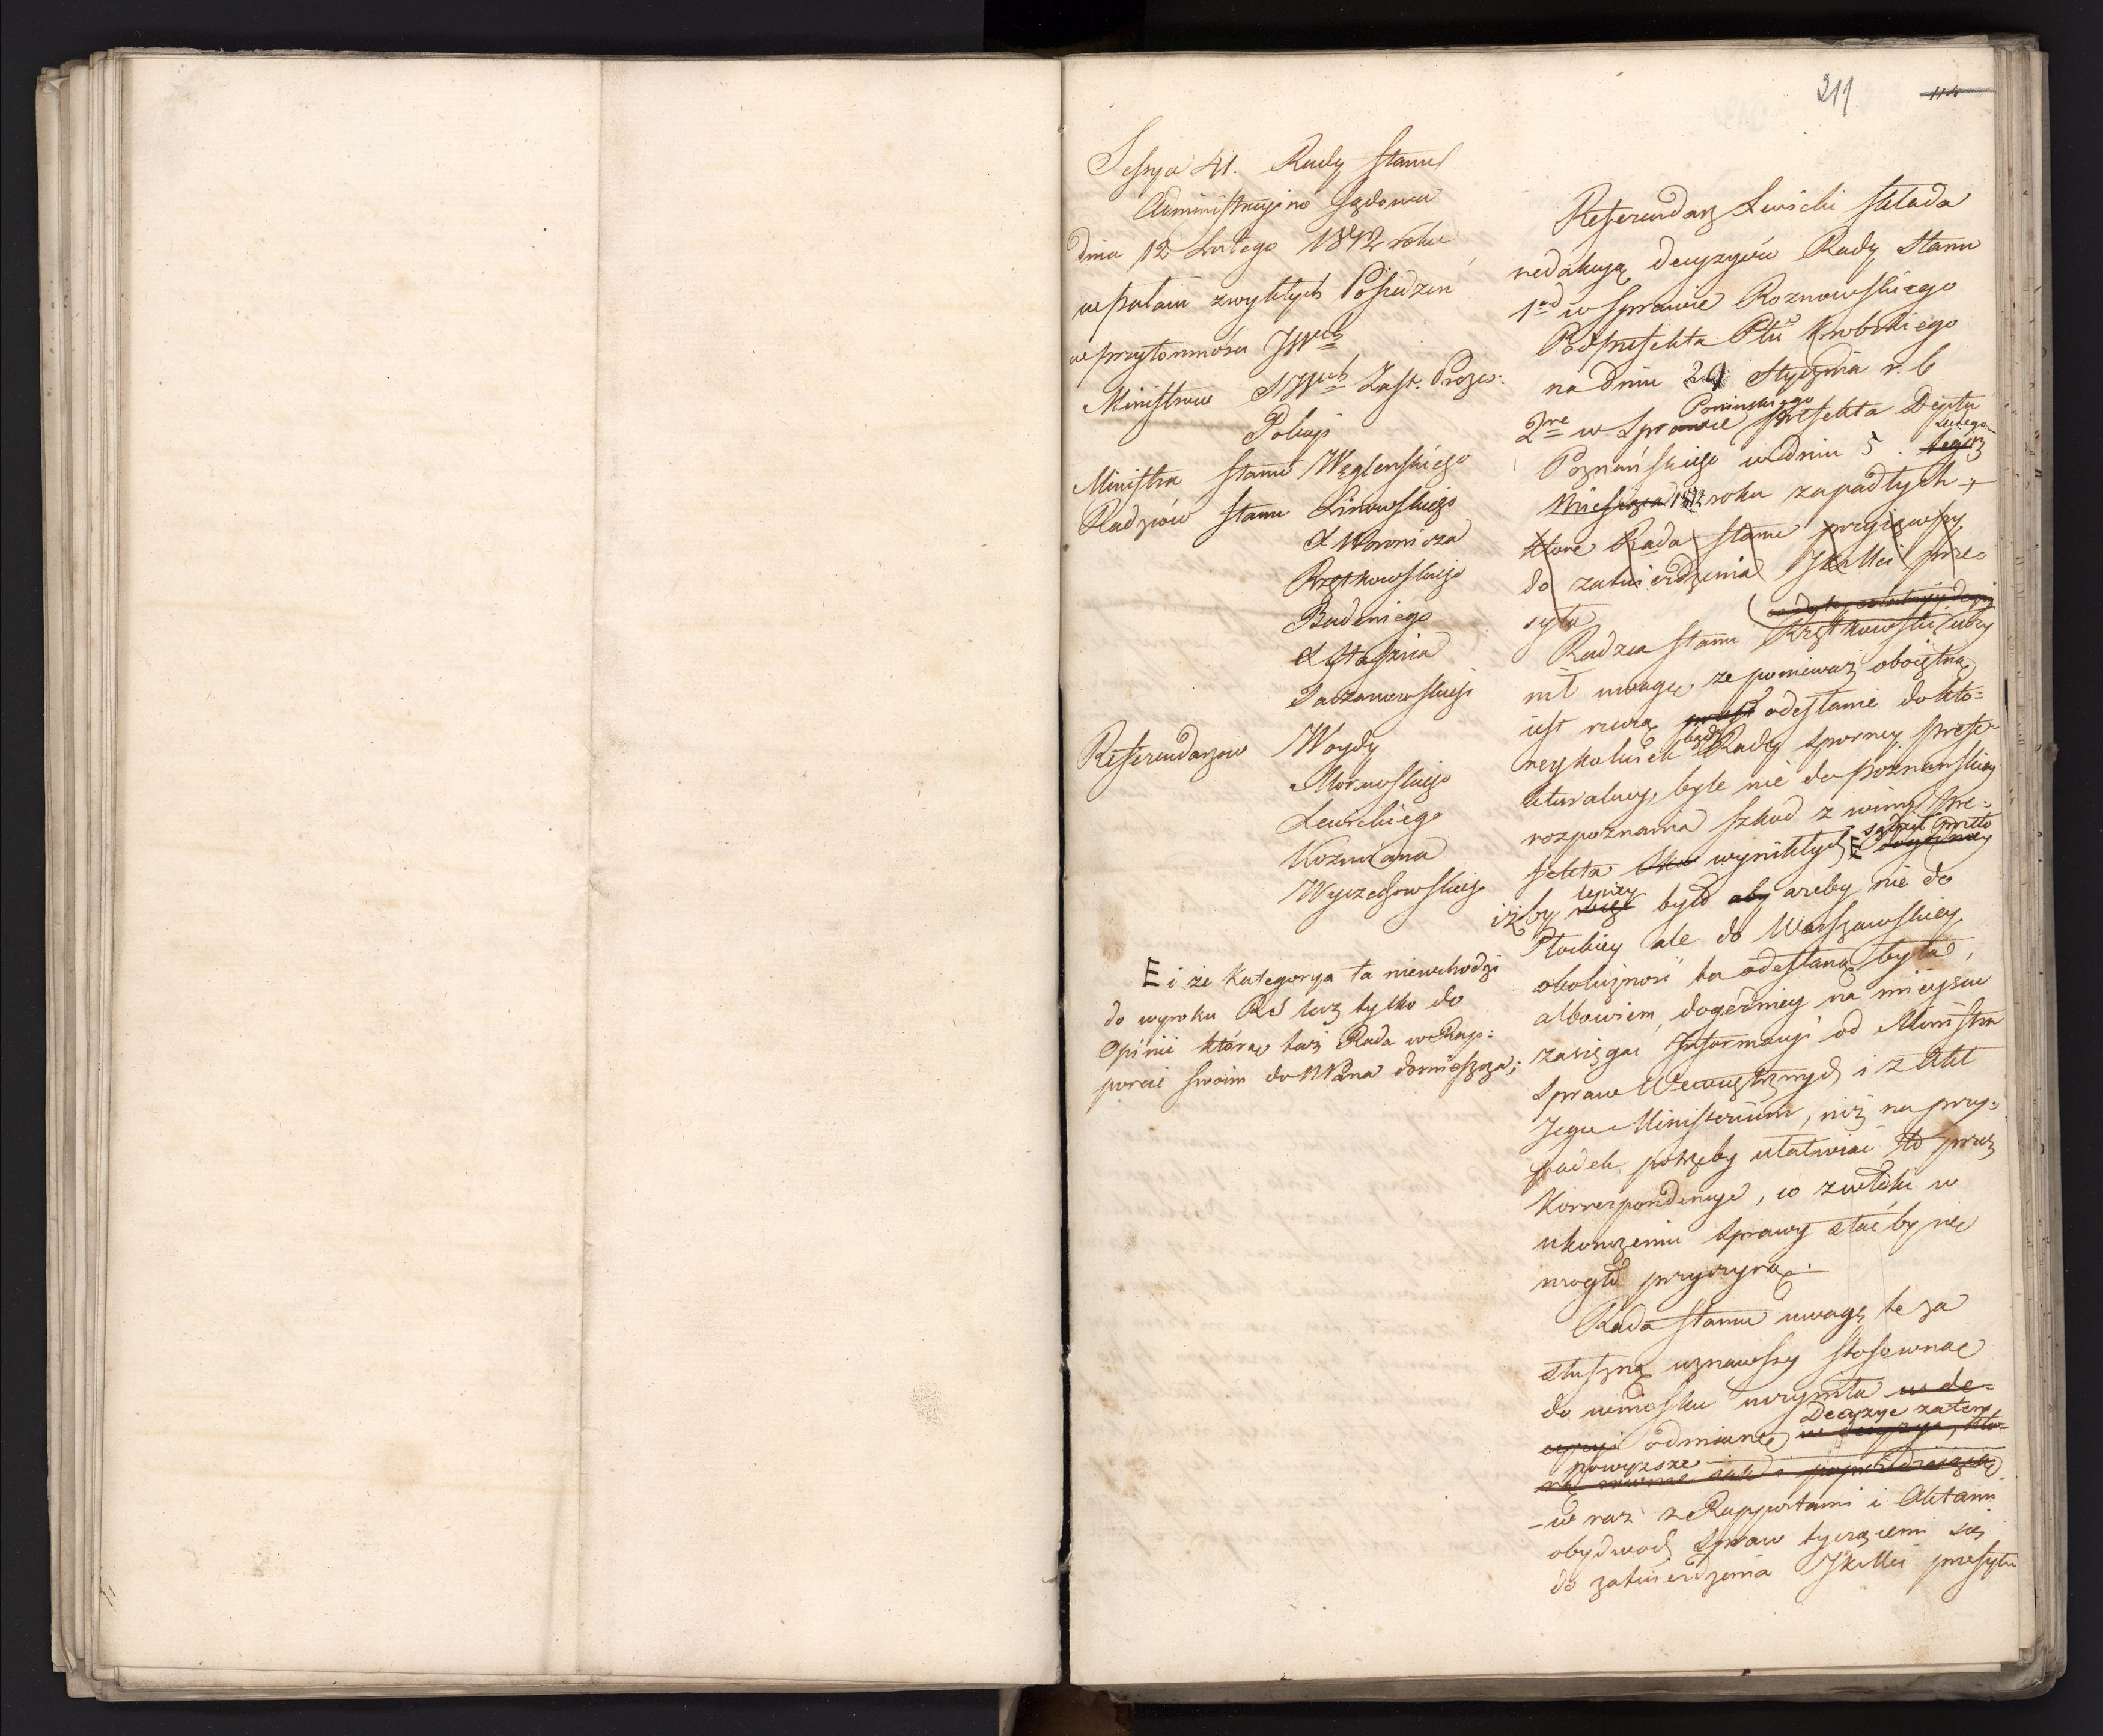 211
114
Sessya 41. Rady Stanu
Administracyino Sądowa
dnia 12 Lutego 1812 roku
w pałacu zwykłych Posiedzeń
w przytomności JWch
Ministrów JWch Zast. Preze:
Policyi
Ministra Stanu Węglenskiego
Radzców Stanu Linowskiego
X Woronicza
Rzętkowskiego
Badeniego
X Staszica
Taczanowskiego
Referendarzow Woydy
Morawskiego
Lewickiego
Kozmiana
Wyczechowskiego
E i że kategorya ta niewchodzi
do wyroku RS lecz tylko do
Opinii którą taż Rada w Rap:
porcie swoim do NPana domieszcza;
Referendarz Lewicki składa
redakcyą decyzyów Rady Stanu
1od w sprawie Roznowskiego
Podprefekta Pttu Krobskiego
na dniu 29 Stycznia r. b
2re w sprawie Poninskiego Prefekta Depttu
Poznańskiego w dniu 5. tegoż Lutego
Miesiąca 1812 roku zapadłych,
które Rada Stanu przyiąwszy
do zatwierdzenia JKMci prze
syła
Radzca Stanu Rzętkowski uczy
nił uwagę że ponieważ oboiętną
iest rzeczą odesłanie do któ=
reykolwiek bądź Rady sporney prefe=
kturalney, byle nie do poznanskiey
rozpoznania szkod z winy Pre=
fekta wynikłych E sądził przeto
iżby lepiey było aby ażeby nie do
Płockiey ale do Warszawskiey
okoliczność ta odesłaną była,
albowiem dogodniey na mieyscu
zasięgać Informacyi od Ministra
Spraw Wewnętrznych i z Akt
Jego Ministerium, niż na przy=
padek potrzeby ułatwiać to przez
Korrespondencye, co zwłoki w
ukończeniu sprawy stać by się
mogło przyczyną.
Rada Stanu uwagę tę za
słuszną uznawszy stosowną
do wniosku uczyniła w de=
cyzyi odmianę Decyzye zatem
powyzsze
w raz z Rapportami i Aktami
obydwoch spraw tyczącemi się
do zatwierdzenia JKMci przesyła